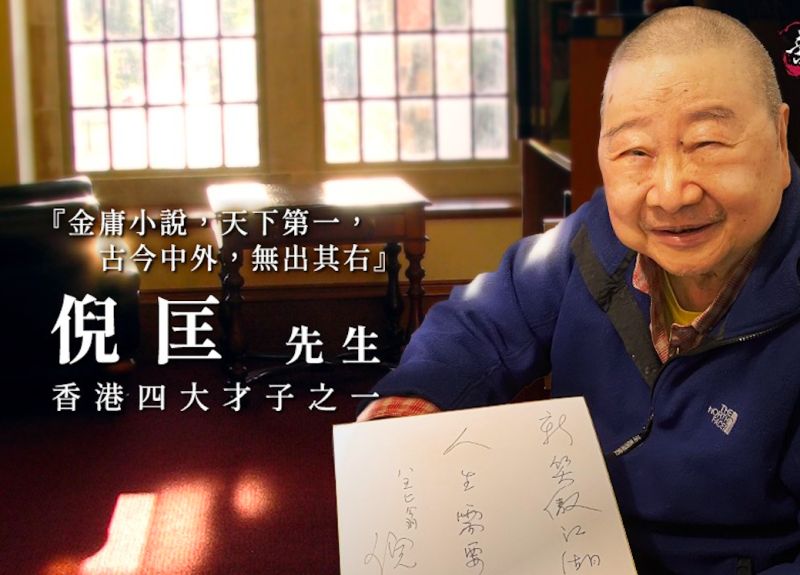 『金庸小說，天下第一，
古今中外，無出其右』
倪匡 先生
香港四大才子之一
THE
NORTH
FACE
新笑傲江湖
人生需要
倪